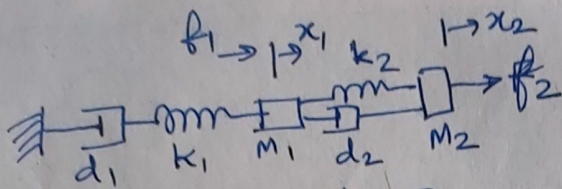 f₁ → |→ x₁
k₂
|→ x₂
f₂
d₁ k₁ M₁ d₂ M₂